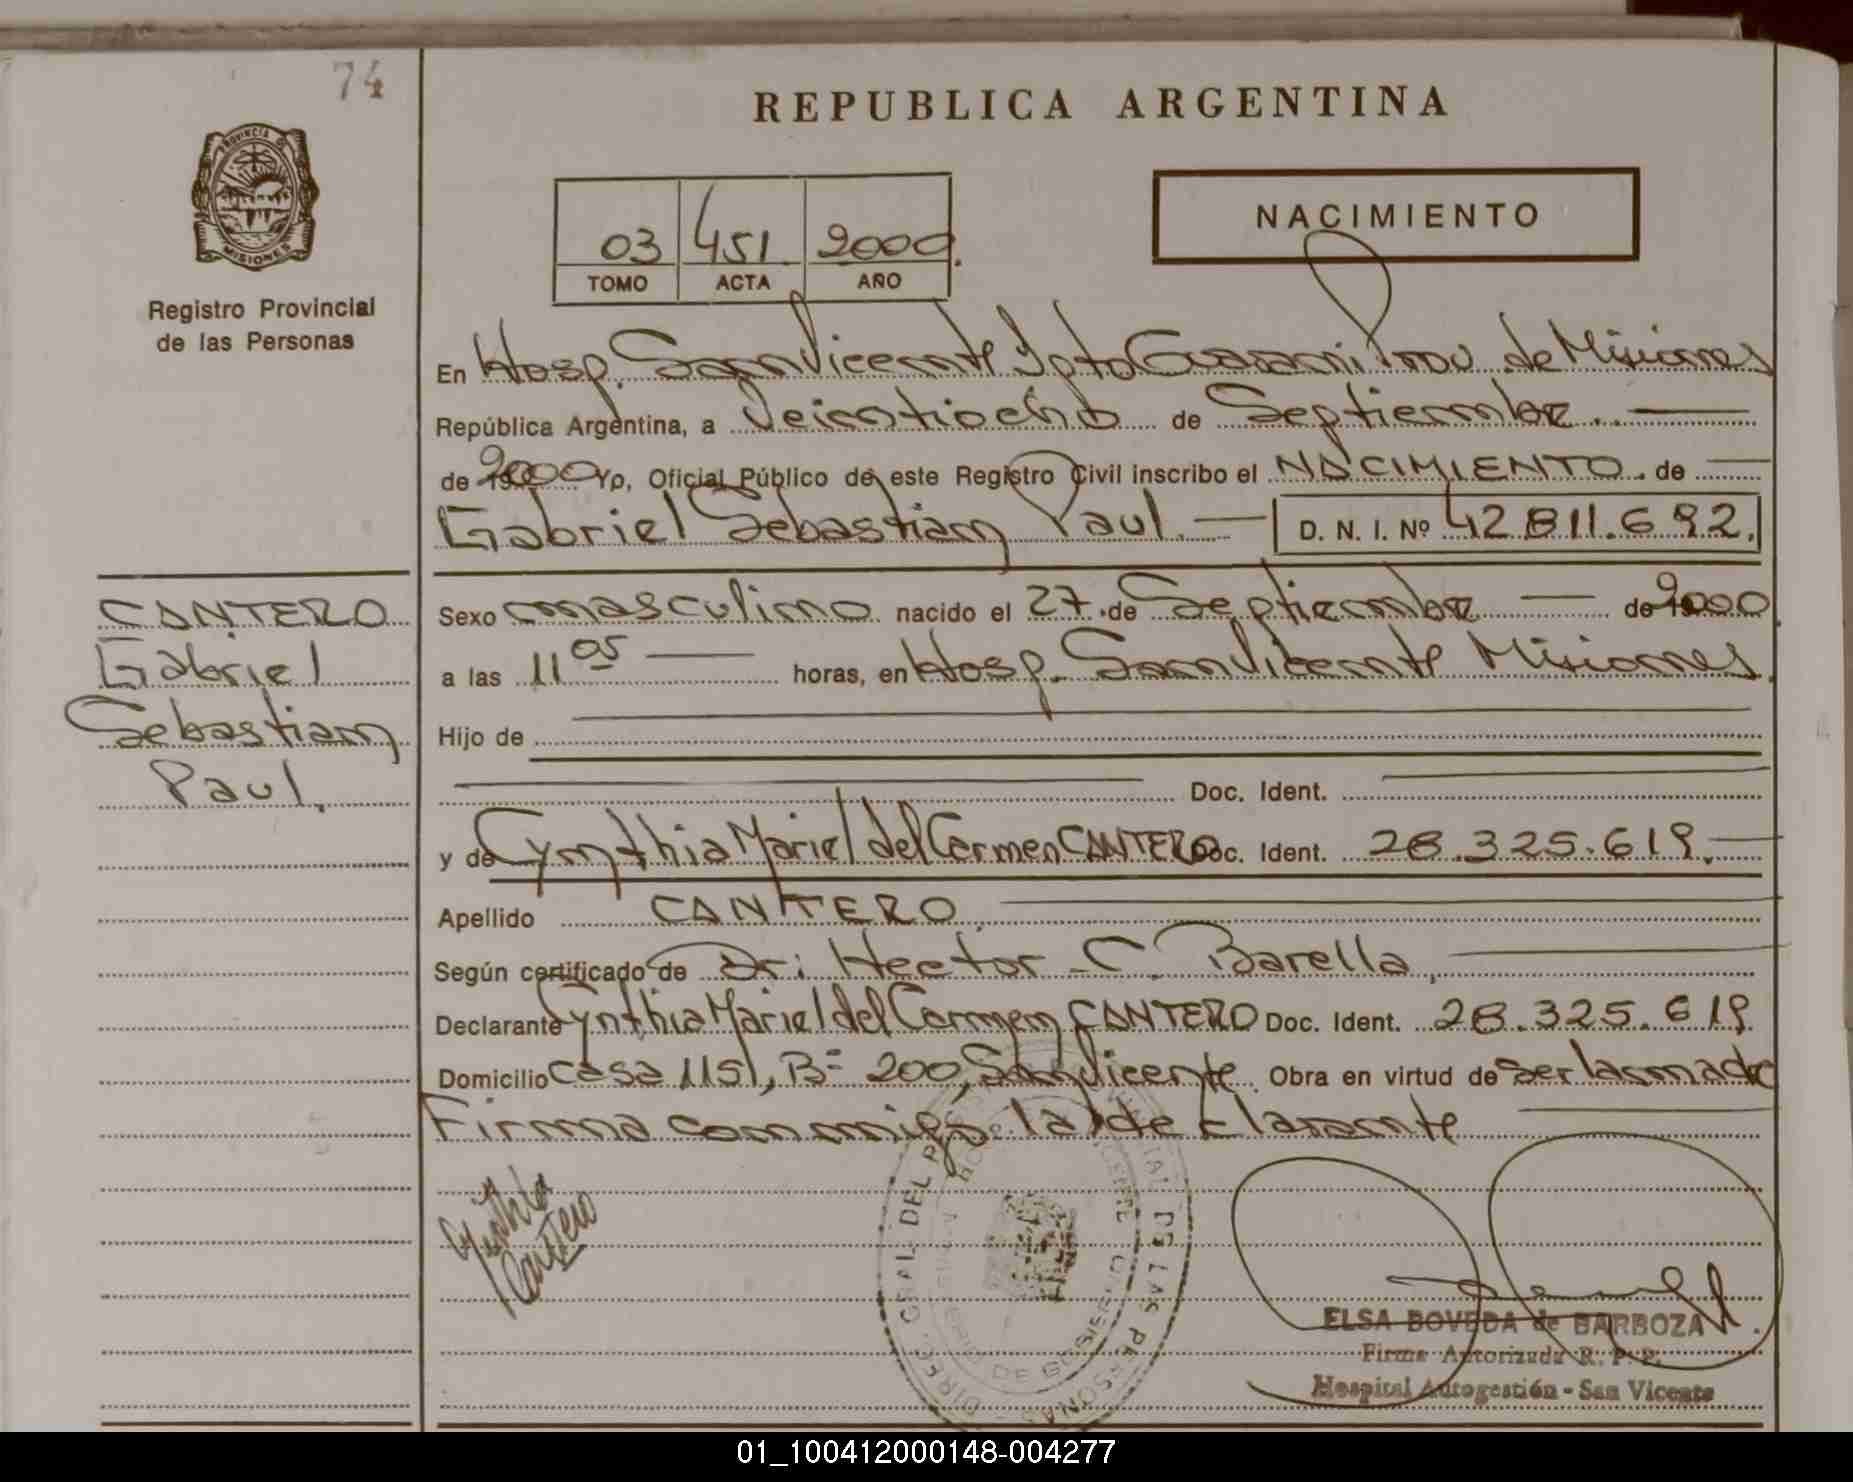 74
REPUBLICA ARGENTINA
PROVINCIA DE
MISIONES
Registro Provincial
de las Personas
NACIMIENTO
03 451 2000.
TOMO ACTA AÑO
En Hosp. San Vicente Dpto Guarani Prov. de Misiones
República Argentina, a Veintiocho de Septiembre
de 2000 Yo, Oficial Público de este Registro Civil inscribo el NACIMIENTO. de
Gabriel Sebastian Paul. D. N. I. Nº 42.811.692.
CANTERO
Gabriel
Sebastian
Paul.
Sexo masculino nacido el 27 de Septiembre de 2000
a las 11 05 horas, en Hosp. San Vicente Misiones.
Hijo de
Doc. Ident.
y de Cynthia Mariel del Carmen CANTERO Doc. Ident. 28.325.619.
Apellido CANTERO
Según certificado de Dr. Hector C. Barella
Declarante Cynthia Mariel del Carmen CANTERO Doc. Ident. 28.325.619
Domicilio casa 115, Bº 200, San Vicente. Obra en virtud de ser la madre
Firma conmigo la declarante
Cynthia
Cantero
DIREC. GRAL. DEL DE LAS PERSONAS
DE GOBIERNO
ELSA BOVEDA de BARBOZA
Firma Autorizada R. P. P.
Hospital Autogestión - San Vicente
01_100412000148-004277